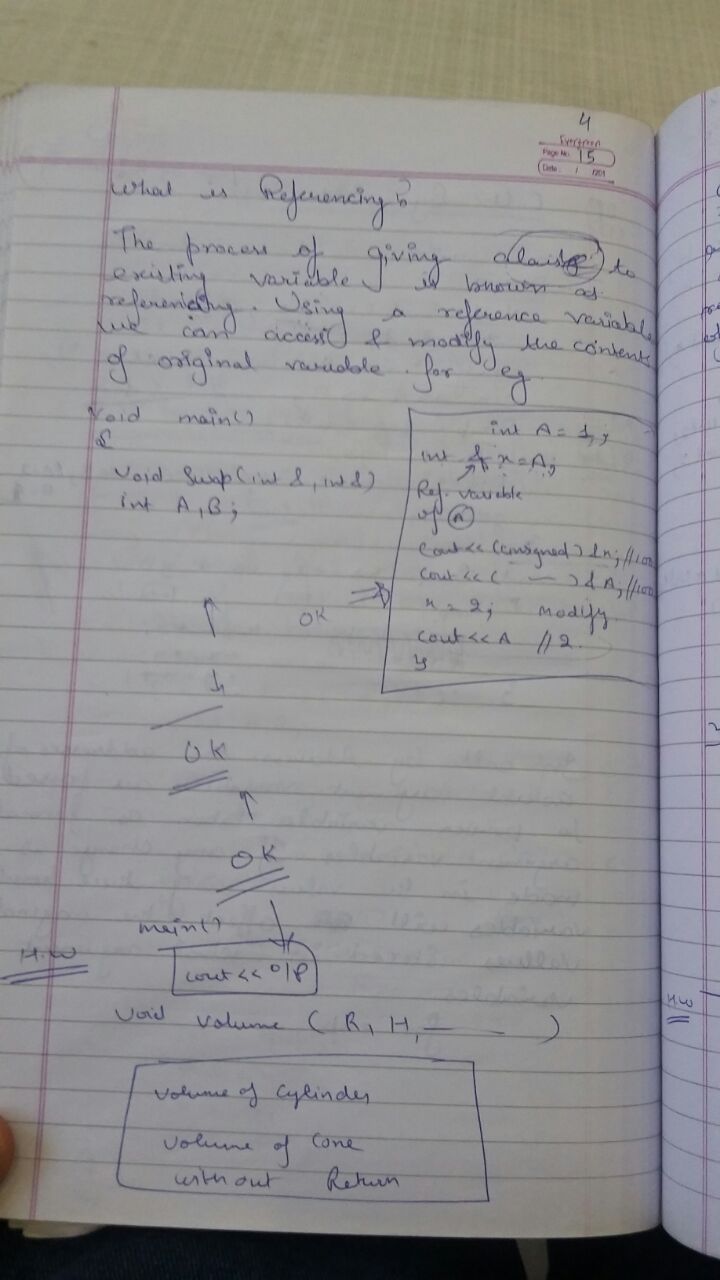 4
Evergreen
Page No. 15
Date: / /201
What is Referencing?
The process of giving alaise to
existing variable is known as
referencing. Using a reference variable
we can access & modify the contents
of original variable. for eg
Void main()
{
Void Swap(int &, int &)
int A, B;
int A = 1;
int & x = A;
Ref. variable
of A
cout<< (unsigned) &x; //100
cout<< ( — ) & A; //100
x = 2; modify
cout<< A // 2.
}
OK
OK
OK
main()
H.W
cout<< O/P
void volume (R, H, — — )
volume of cylinder
volume of cone
without Return
H.W